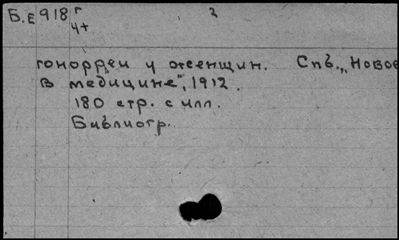 Б.Е 918 г 2
4+
гонорреи у женщин. Спб., „Новое
в медицине", 1912.
180 стр. с илл.
Библиогр.